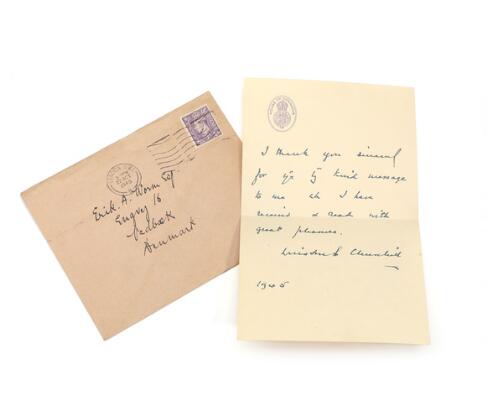 Erik A. Worm Esq
Engvej 16
Rødbæk
Denmark
HOUSE OF COMMONS
I thank you sincerely
for your kind message
to me wh I have
received & read with
great pleasure.
Winston S. Churchill
1945